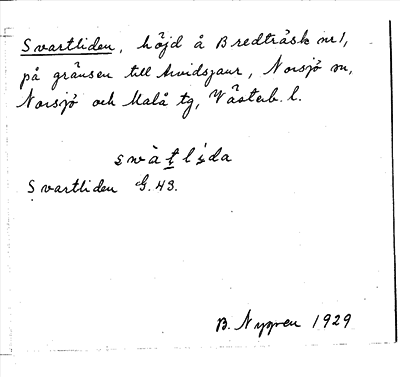 Svartliden, höjd å Bredträsk nr 1,
på gränsen till Arvidsjaur, Norsjö sn,
Norsjö och Malå tg, Västerb. l.
swàt̲lída
Svartliden G. 43.
B. Nygren 1929